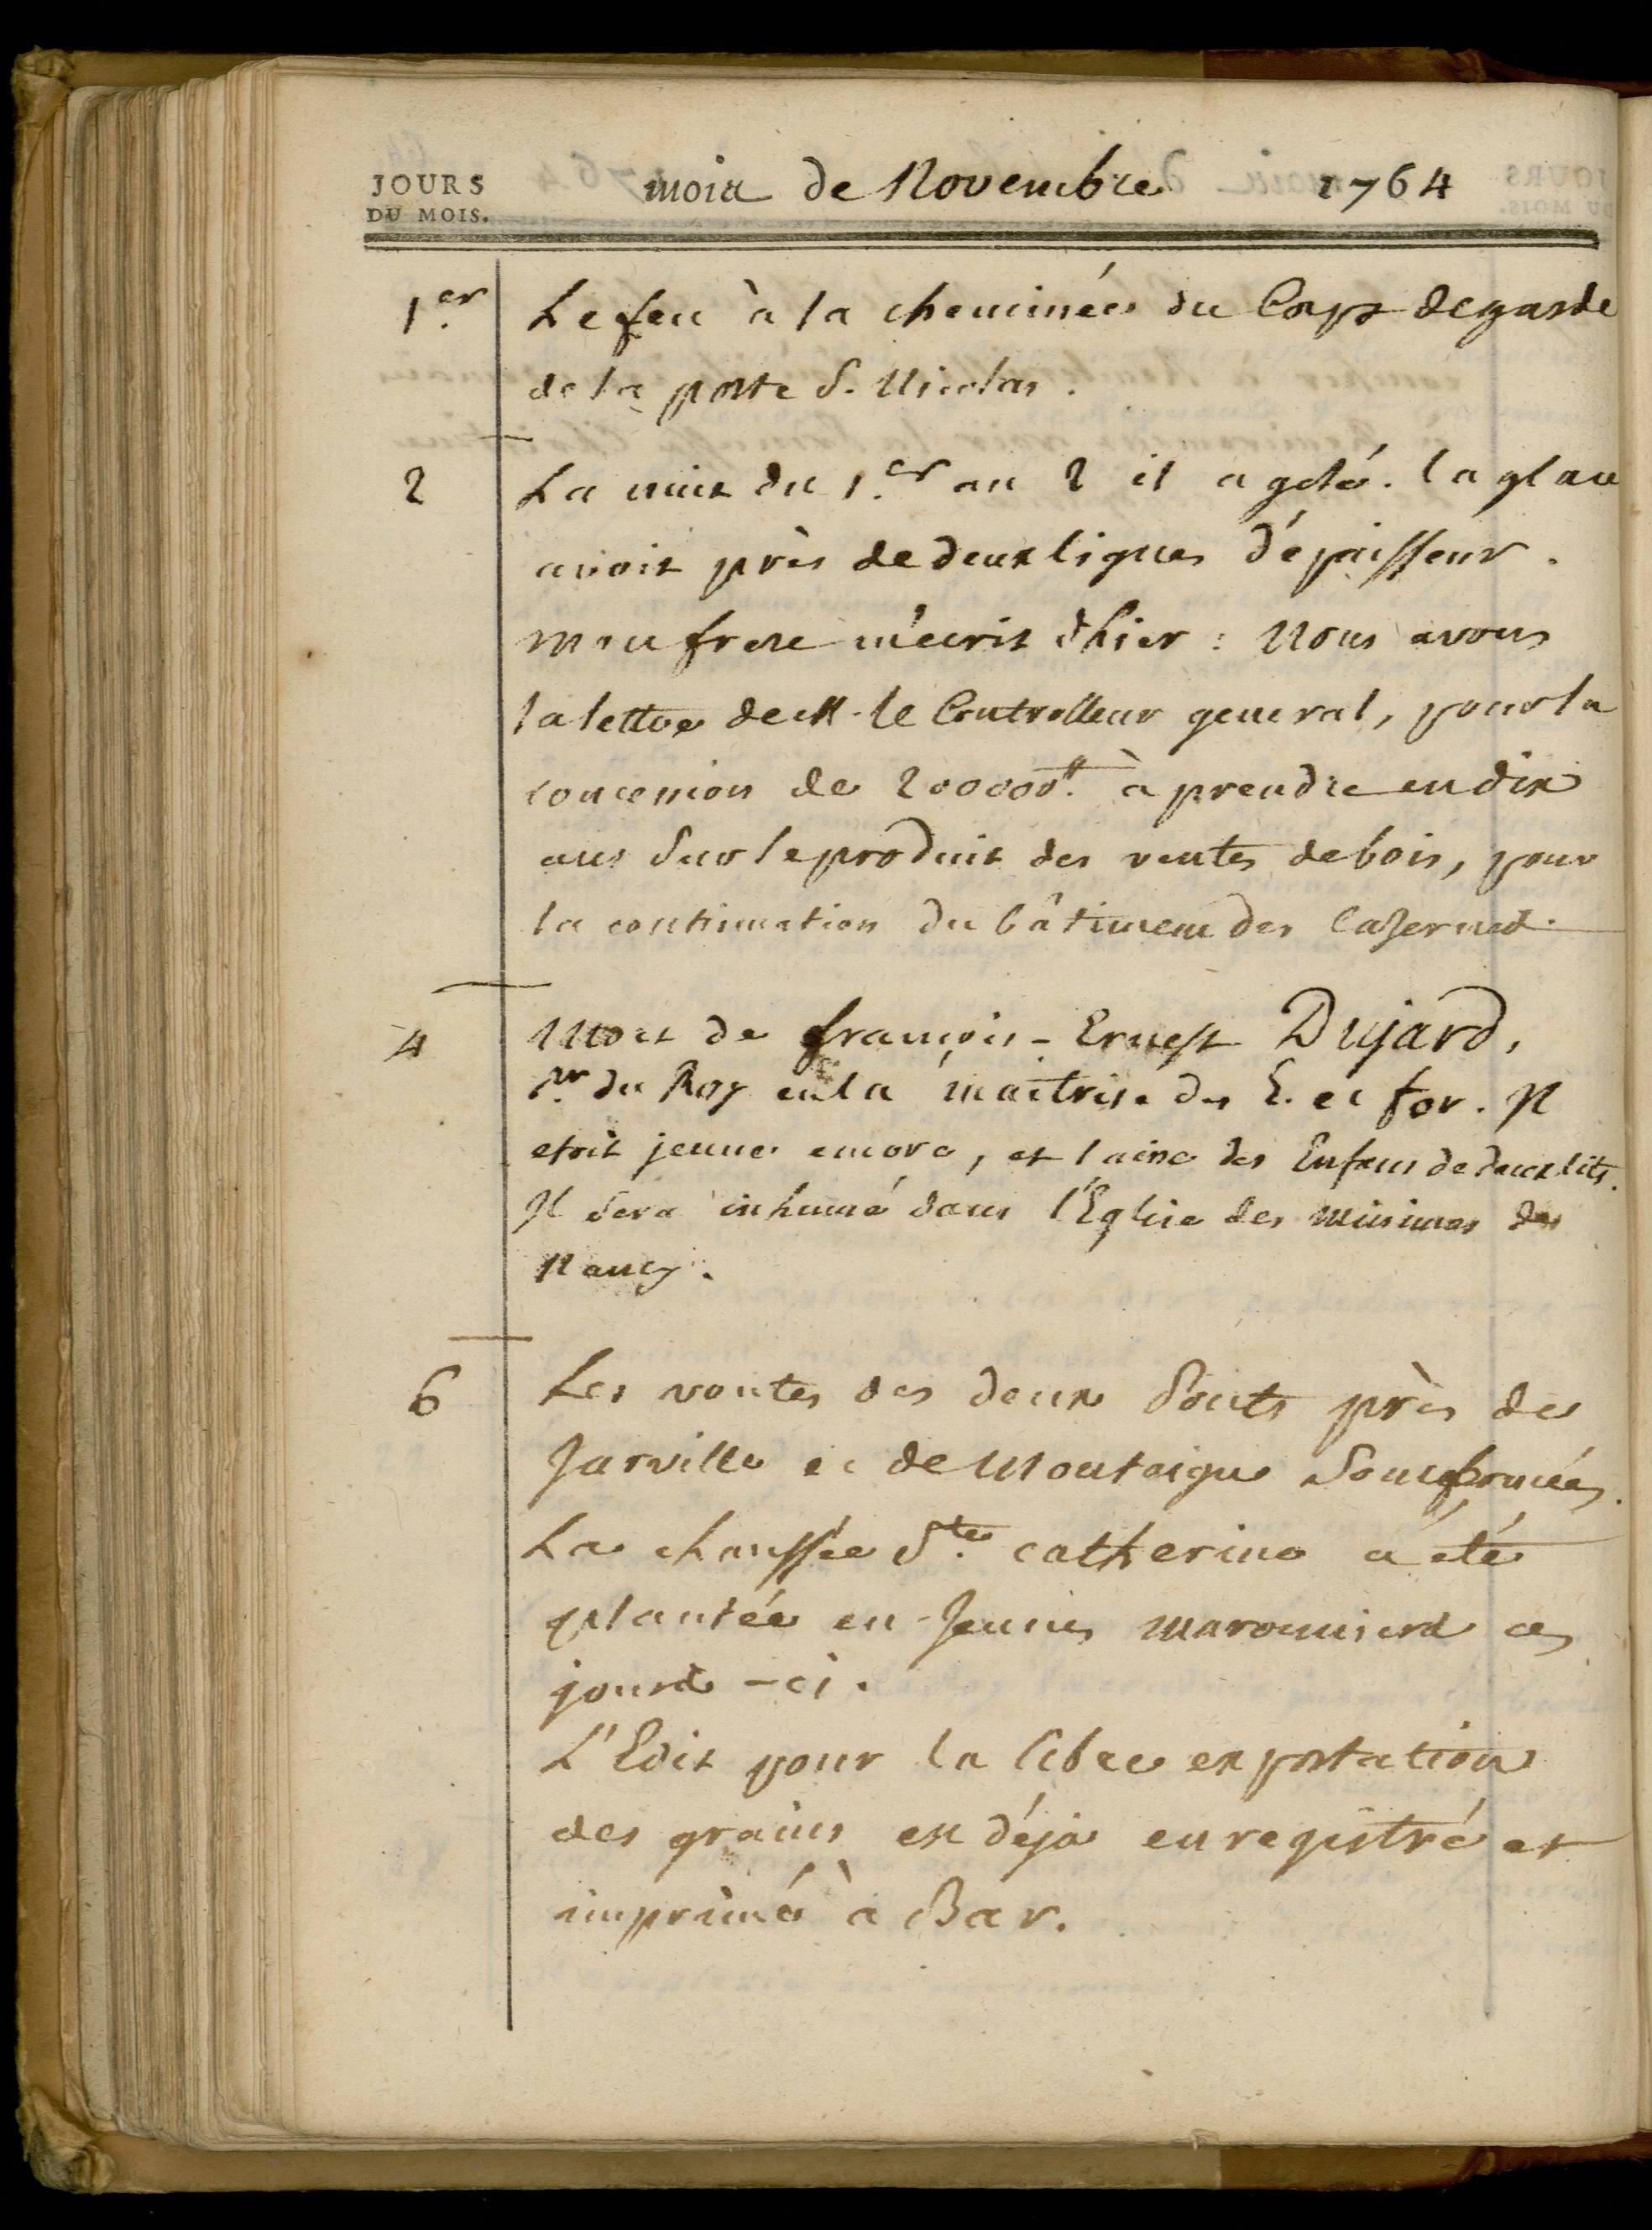 JOURS
DU MOIS.
mois de Novembre 1764
1.er Le feu à la cheminée du Corps degarde
de la porte S. Nicolas.
2 La nuit du 1.er au 2 il a gelé. la glace
avoit près de deux lignes d'épaisseur.
mon frere m'ecrit d'hier : Nous avons
la lettre de M. le Controlleur general, pour la
concession de 20000.# à prendre en dix
ans sur le produit des ventes de bois, pour
la continuation du bâtiment des Casernes.
4 Mort de françois-Ernest Dujard,
Pr. du Roy en la maîtrise des E. et for. Il
etoit jeune encore, et l'ainé des Enfans de deux lits.
Il sera inhumé dans l'Eglise des Minimes de
Nancy.
6 Les voutes des deux Ponts près de
Jarville et de Montaigu sont fermées.
La chaussée S.te catherine a été
plantée en Jeunes maronniers ces
jours-ci.
L'Edit pour la libre exportation
des grains est déja enregistré et
imprimé à Bar.